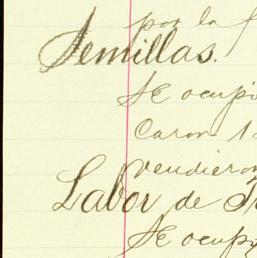 por la
Semillas.
Se ocupó
Caron
vendieron
Labor de
Se ocupó